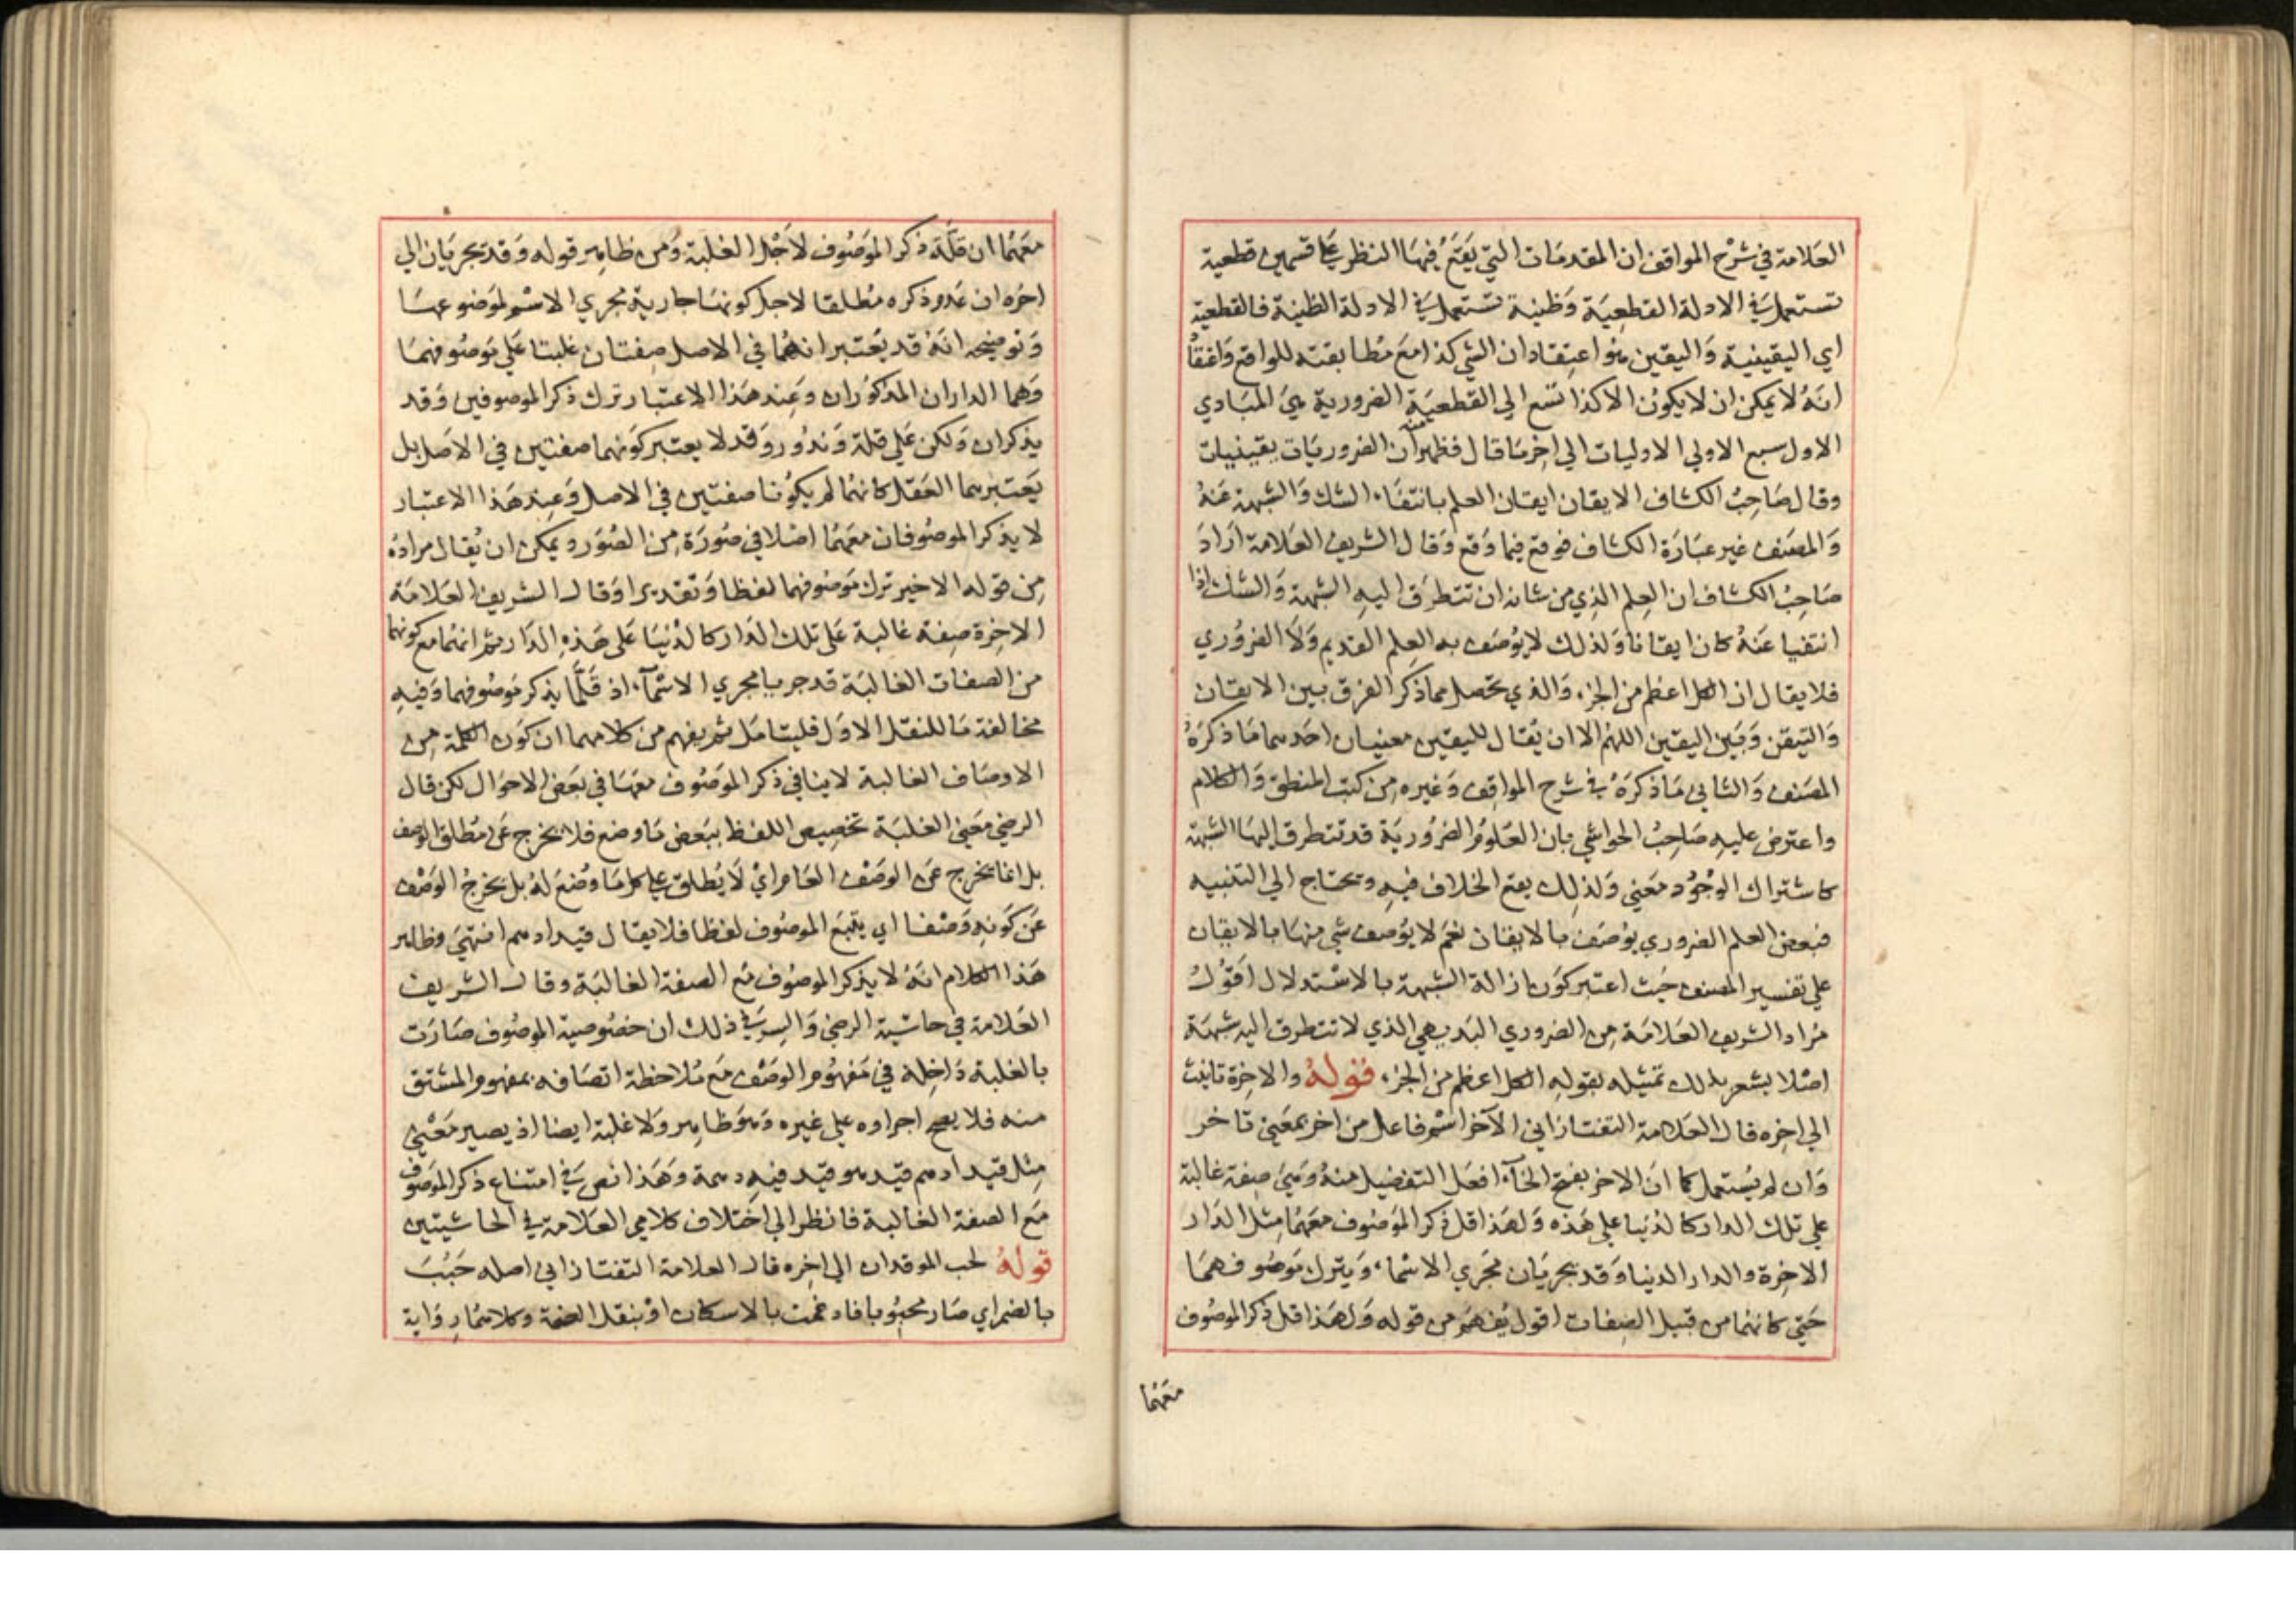 العلامة في شرح المواقف ان المقدمات التي يقع فيها النظر علي قسمين قطعية
تستعمل في الادلة القطعية وظنية تستعمل في الادلة الظنية فالقطعية
اي اليقينية واليقين هو اعتقاد ان الشي كذا مع مطابقته للواقع واعتقاد
انه لا يمكن ان لا يكون الا كذا تسع الي القطعية الضرورية هي المبادي
الاول سبع الاولي الاوليات الي اخر ما قال فظهر منه ان الضروريات يقينيات
وقال صاحب الكشاف الايقان ايقان العلم بانتفاء الشك والشبهة عنه
والمصنف غير عبارة الكشاف فوقع فيما وقع وقال الشريف العلامة اراد
صاحب الكشاف ان العلم الذي من شانه ان تتطرق اليه الشبهة والشك اذا
انتفيا عنه كان ايقانا ولذلك لا يوصف به العلم القديم ولا الضروري
فلا يقال ان الكل اعظم من الجزء والذي تحصل مما ذكر الفرق بين الايقان
والتيقن وبين اليقين اللهم الا ان يقال لليقين معنيان احدهما ما ذكره
المصنف والثاني ما ذكره في شرح المواقف وغيره من كتب المنطق والكلام
واعترض عليه صاحب الحواشي بان العلوم الضرورية قد تتطرق اليها الشبهة
كاشتراك الوجود معني ولذلك يقع الخلاف فيه ويحتاج الي التنبيه
فبعض العلم الضروري يوصف بالايقان نعم لا يوصف شي منها بالايقان
علي تفسير المصنف حيث اعتبر كون ازالة الشبهة بالاستدلال اقول
مراد الشريف العلامة من الضروري البديهي الذي لا تتطرق اليه شبهة
اصلا يشعر بذلك تمثيله بقوله الكل اعظم من الجزء قوله والاخرة تانيث
الي اخره قال العلامة التفتازاني الآخر اسم فاعل من اخر بمعني تاخر
وان لم يستعمل كما ان الاخر بفتح الخآء افعل التفضيل منه وهي صفة غالبة
علي تلك الدار كالدنيا علي هذه ولهذا قل ذكر الموصوف معهما مثل الدار
الاخرة والدار الدنيا وقد يجريان مجري الاسماء ويترك موصوفهما
حتي كانهما من قبيل الصفات اقول يفهم من قوله ولهذا قل ذكر الموصوف
معهما
معهما ان قلة ذكر الموصوف لاجل الغلبة ومن ظاهر قوله وقد يجريان الي
اخره ان عدم ذكره مطلقا لاجل كونها جارية مجري الاسم لموضوعها
وتوضيحه انه قد يعتبر انهما في الاصل صفتان غلبتا علي موصوفهما
وهما الداران المذكوران وعند هذا الاعتبار ترك ذكر الموصوفين وقد
يذكران ولكن علي قلة وندور وقد لا يعتبر كونهما صفتين في الاصل بل
يعتبرهما العقل كانهما لم يكونا صفتين في الاصل وعند هذا الاعتبار
لا يذكر الموصوفان معهما اصلا في صورة من الصور ويمكن ان يقال مراده
من قوله الاخير ترك موصوفهما لفظا وتقديرا وقال الشريف العلامة
الاخرة صفة غالبة علي تلك الدار كالدنيا علي هذه الدار ثم انهما مع كونهما
من الصفات الغالبة قد جريا مجري الاسمآء اذ قلما يذكر موصوفهما وفيه
مخالفة ما للنقل الاول فليتامل ثم يفهم من كلامهما ان كون الكلمة من
الاوصاف الغالبة لا ينافي ذكر الموصوف معها في بعض الاحوال لكن قال
الرضي معني الغلبة تخصيص اللفظ ببعض ما وضع فلا يخرج عن مطلق الوصف
بل انما يخرج عن الوصف العام اي لا يطلق علي كل ما وضع له بل يخرج الوصف
عن كونه وصفا اي يتبع الموصوف لفظا فلا يقال قيد ادهم انتهي وظاهر
هذا الكلام انه لا يذكر الموصوف مع الصفة الغالبة وقال الشريف
العلامة في حاشية الرضي والسر في ذلك ان خصوصية الموصوف صارت
بالغلبة داخلة في مفهوم الوصف مع ملاحظة اتصافه بمفهوم المشتق
منه فلا يصح اجراوه علي غيره وهو ظاهر ولا غلبة ايضا اذ يصير معني
مثل قيد ادهم قيد هو قيد فيه دهمة وهذا نص في امتناع ذكر الموصوف
مع الصفة الغالبة فانظر الي اختلاف كلامي العلامة في الحاشيتين
قوله لحب الموقدان الي اخره قال العلامة التفتازاني اصله حبب
بالضم اي صار محبوبا فادغمت بالاسكان او بنقل الضمة وكلاهما رواية